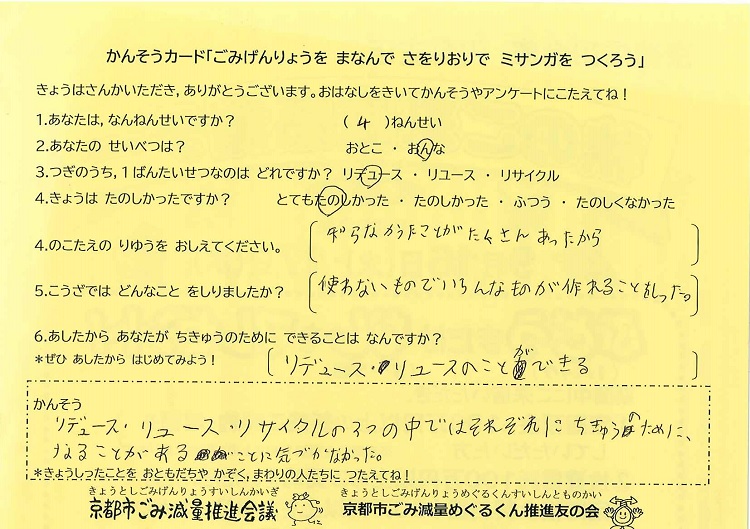 かんそうカード「ごみげんりょうを まなんで さをりおりで ミサンガを つくろう」
きょうはさんかいただき,ありがとうございます。おはなしをきいてかんそうやアンケートにこたえてね！
1.あなたは,なんねんせいですか？ ( 4 )ねんせい
2.あなたの せいべつは？ おとこ ・ おんな
3.つぎのうち,１ばんたいせつなのは どれですか？ リデュース ・ リユース ・ リサイクル
4.きょうは たのしかったですか？ とてもたのしかった ・ たのしかった ・ ふつう ・ たのしくなかった
4.のこたえの りゆうを おしえてください。 知らなかったことがたくさんあったから
5.こうざでは どんなこと をしりましたか？ 使わないものでいろんなものが作れることをしった。
6.あしたから あなたが ちきゅうのために できることは なんですか？
*ぜひ あしたから はじめてみよう！ リデュース・リユースのことができる
かんそう
リデュース・リユース・リサイクルの3つの中ではそれぞれにちきゅうのために、
なることがあることに気づかなかった。
*きょうしったことを おともだちや かぞく,まわりの人たちに つたえてね！
きょうとしごみげんりょうすいしんかいぎ きょうとしごみげんりょうめぐるくんすいしんとものかい
京都市ごみ減量推進会議 京都市ごみ減量めぐるくん推進友の会